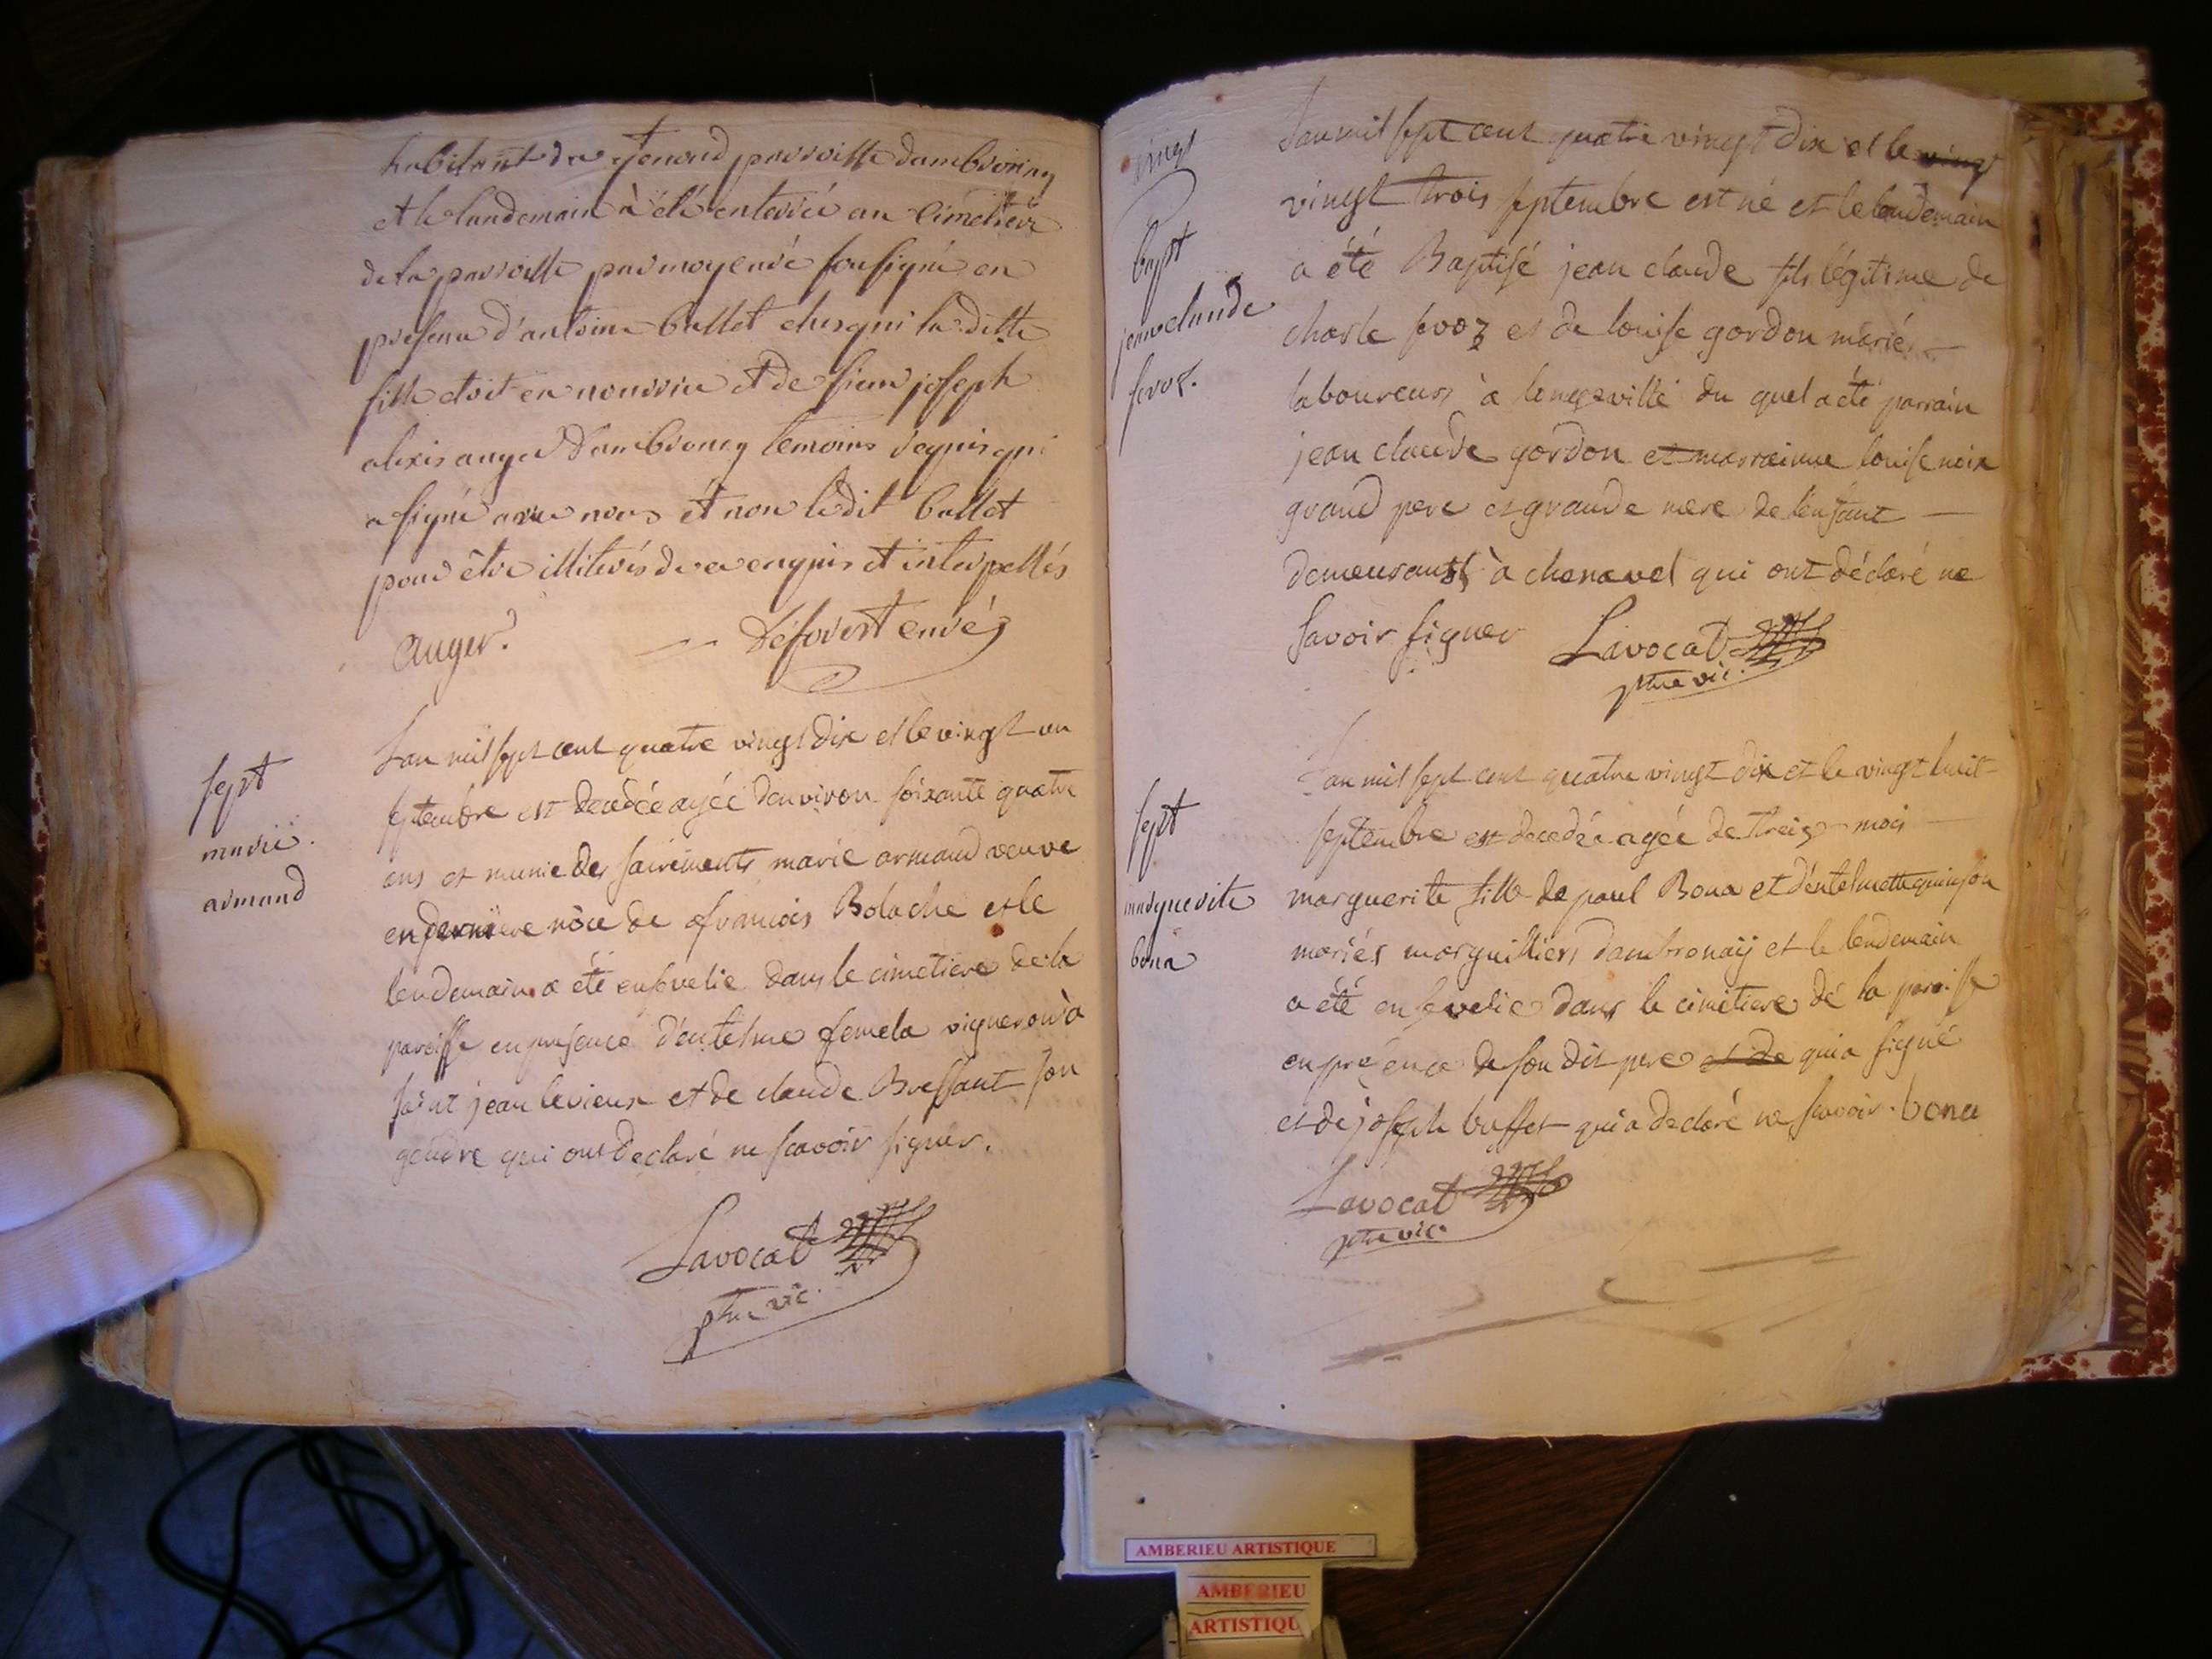 habitant de Genoud parroisse dambronay
et le landemain à été enterrée au Cimetiere
de la parroisse par moy curé sousigné en
presence d'antoine ballet chez qui la ditte
fille etoit en nourrice et de sieur joseph
alexis auger d'ambronay temoins requis qui
a signé avec nous et non le dit ballet
pour être illiterés de ce enquis et interpellés
auger. Déforest curé
sept
marie
armand
L'an mil sept cent quatre vingt dix et le vingt un
septembre est decedée agée d'environ soixante quatre
ans et munie des sacrements marie armand veuve
en derniere nôce de francois Bolache et le
lendemain a été ensevelie dans le cimetiere de la
paroisse en presence d'entelme femela vigneron à
saint jean le vieux et de claude Bressant son
gendre qui ont declaré ne scavoir signer.
Lavocat
ptre vic.
vingt
bapt
jean claude
fevoz.
L'an mil sept cent quatre vingt dix et le vingt
vingt trois septembre est né et le lendemain
a été Baptisé jean claude fils légitime de
charle fevoz et de louise gordon mariés
laboureurs à longeville du quel a été parrain
jean claude gordon et marrainne louise noix
grand pere et grande mere de l'enfant
demeurants à chenavel qui ont déclaré ne
savoir signer Lavocat
ptre vic.
sept
marguerite
bona
L'an mil sept cent quatre vingt dix et le vingt huit
septembre est decedée agée de treize mois
marguerite fille de paul Bona et d'entelmette quinson
mariés marguilliers dambronaÿ et le lendemain
a été ensevelie dans le cimetiere de la paroisse
en presence de son dit pere et de qui a signé
et de joseph buffet qui a declaré ne scavoir. bona
Lavocat
ptre vic.
AMBERIEU ARTISTIQUE
AMBERIEU
ARTISTIQU